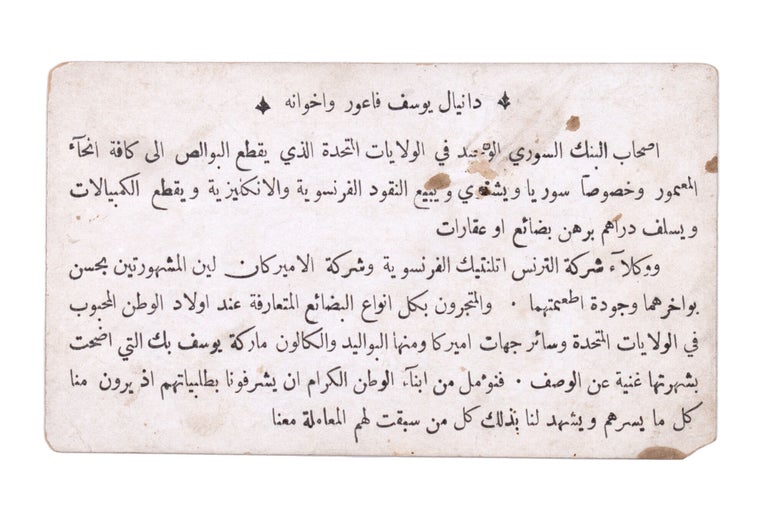 دانيال يوسف فاعور واخوانه
اصحاب البنك السوري الوحيد في الولايات المتحدة الذي يقطع البوالص الى كافة انحآء
المعمور وخصوصاً سوريا ويشتري ويبيع النقود الفرنسوية والانكليزية ويقطع الكمبيالات
ويسلف دراهم برهن بضائع او عقارات
ووكلآء شركة الترنس اتلنتيك الفرنسوية وشركة الاميركان لين المشهورتين بحسن
بواخرهما وجودة اطعمتهما ٠ والمتجرون بكل انواع البضائع المتعارفة عند اولاد الوطن المحبوب
في الولايات المتحدة وسائر جهات اميركا ومنها البواليد والكالون ماركة يوسف بك التي اضحت
بشهرتها غنية عن الوصف ٠ فنؤمل من ابنآء الوطن الكرام ان يشرفونا بطلبياتهم اذ يرون منا
كل ما يسرهم ويشهد لنا بذلك كل من سبقت لهم المعاملة معنا